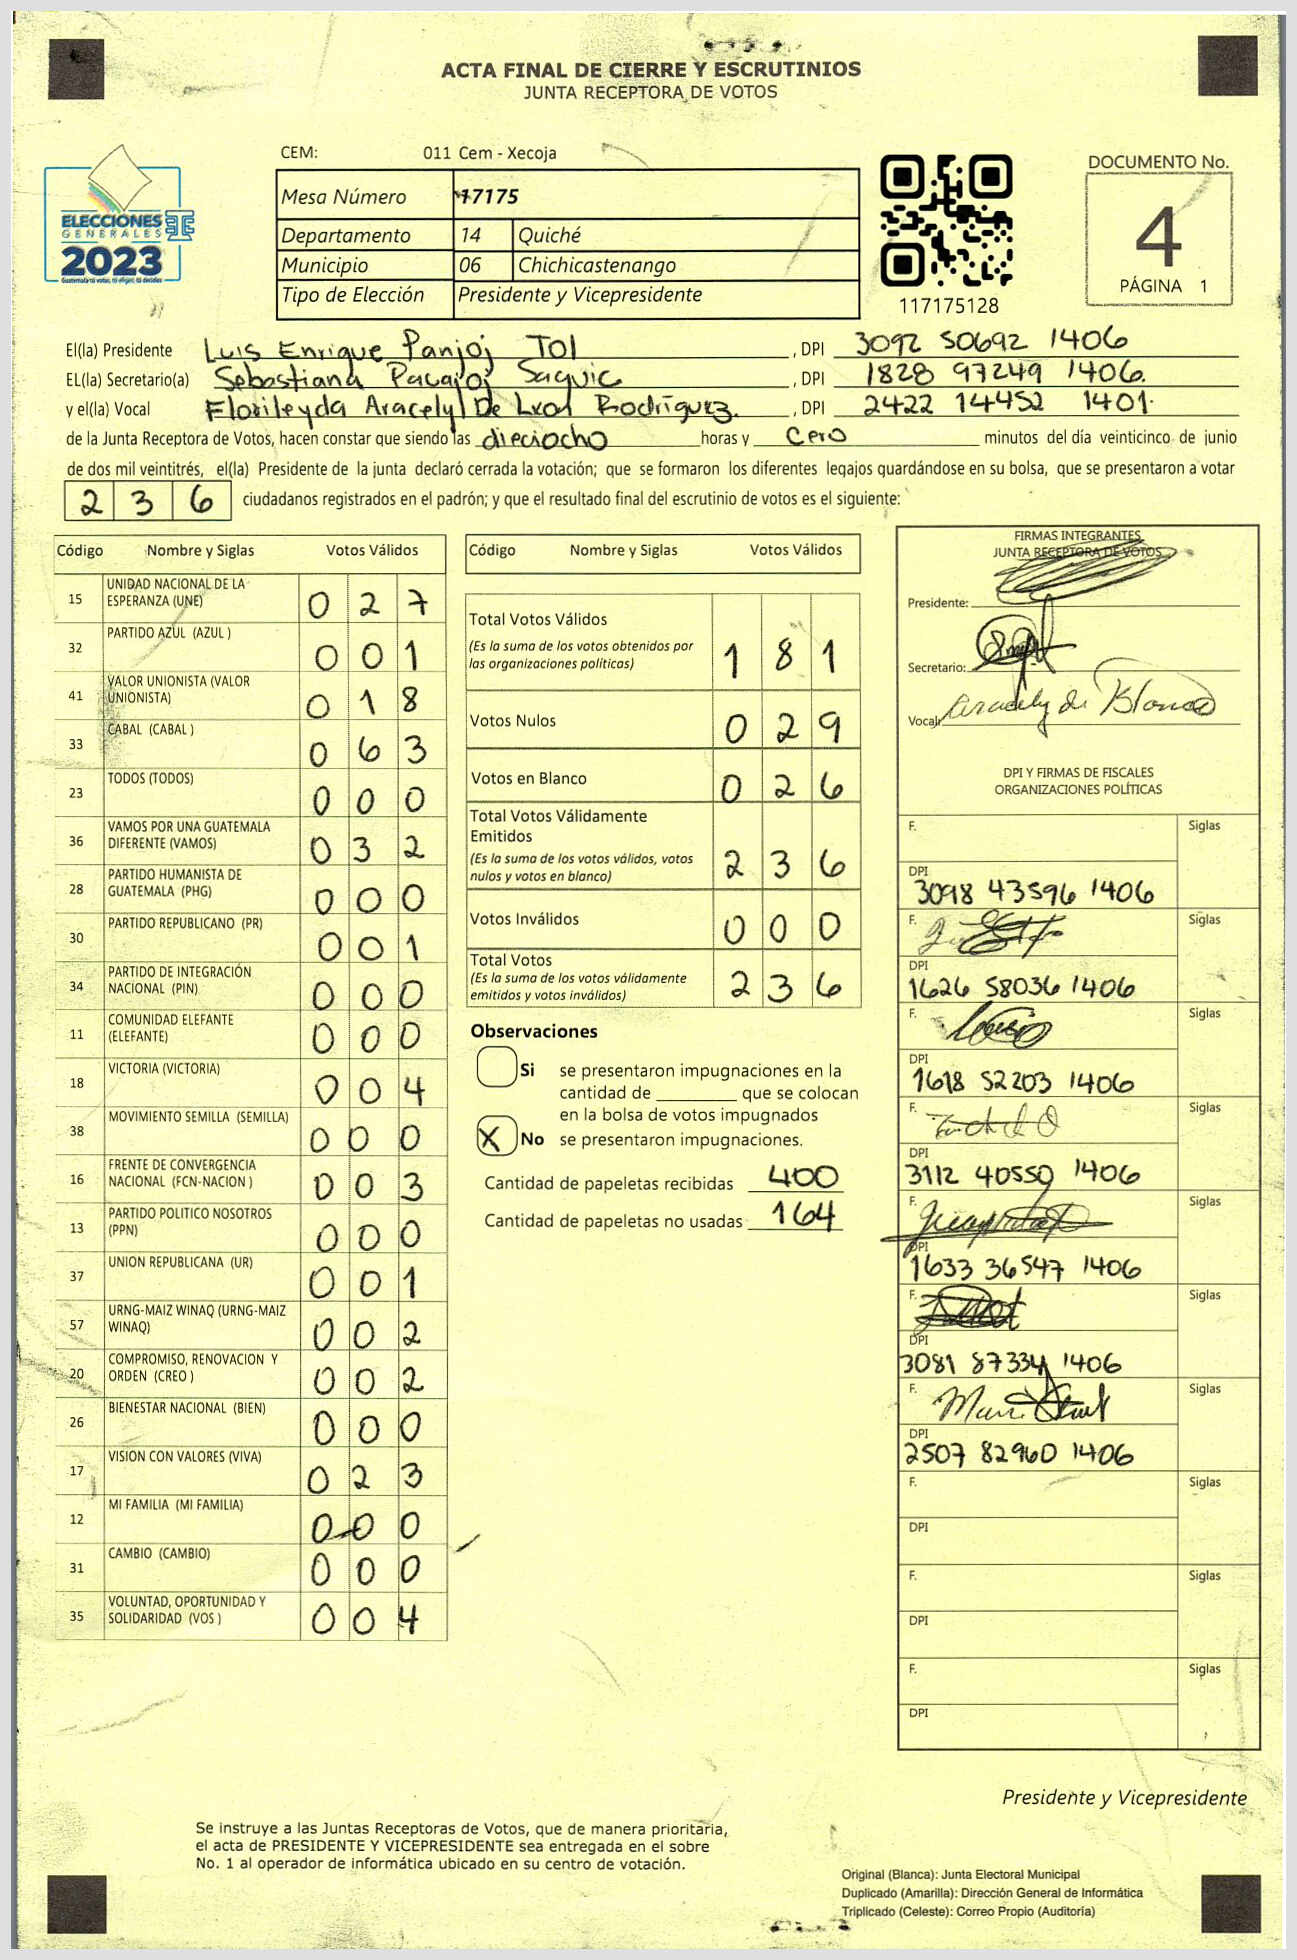 ACTA FINAL DE CIERRE Y ESCRUTINIOS
JUNTA RECEPTORA DE VOTOS
CEM: 011 Cem - Xecoja
ELECCIONES
GENERALES
2023
Guatemala tú votas, tú eliges, tú decides
Mesa Número 17175
Departamento 14 Quiché
Municipio 06 Chichicastenango
Tipo de Elección Presidente y Vicepresidente
117175128
DOCUMENTO No.
4
PÁGINA 1
El(la) Presidente Luis Enrique Panjoj Tol , DPI 3092 50692 1406
EL(la) Secretario(a) Sebastiana Pacajoj Saquic , DPI 1828 97249 1406.
y el(la) Vocal Florileyda Aracely De Leon Rodríguez. , DPI 2422 14452 1401.
de la Junta Receptora de Votos, hacen constar que siendo las dieciocho horas y cero minutos del día veinticinco de junio
de dos mil veintitrés, el(la) Presidente de la junta declaró cerrada la votación; que se formaron los diferentes legajos guardándose en su bolsa, que se presentaron a votar
2 3 6 ciudadanos registrados en el padrón; y que el resultado final del escrutinio de votos es el siguiente:
Código Nombre y Siglas Votos Válidos
15 UNIDAD NACIONAL DE LA ESPERANZA (UNE) 0 2 7
32 PARTIDO AZUL (AZUL ) 0 0 1
41 VALOR UNIONISTA (VALOR UNIONISTA) 0 1 8
33 CABAL (CABAL ) 0 6 3
23 TODOS (TODOS) 0 0 0
36 VAMOS POR UNA GUATEMALA DIFERENTE (VAMOS) 0 3 2
28 PARTIDO HUMANISTA DE GUATEMALA (PHG) 0 0 0
30 PARTIDO REPUBLICANO (PR) 0 0 1
34 PARTIDO DE INTEGRACIÓN NACIONAL (PIN) 0 0 0
11 COMUNIDAD ELEFANTE (ELEFANTE) 0 0 0
18 VICTORIA (VICTORIA) 0 0 4
38 MOVIMIENTO SEMILLA (SEMILLA) 0 0 0
16 FRENTE DE CONVERGENCIA NACIONAL (FCN-NACION ) 0 0 3
13 PARTIDO POLITICO NOSOTROS (PPN) 0 0 0
37 UNION REPUBLICANA (UR) 0 0 1
57 URNG-MAIZ WINAQ (URNG-MAIZ WINAQ) 0 0 2
20 COMPROMISO, RENOVACION Y ORDEN (CREO ) 0 0 2
26 BIENESTAR NACIONAL (BIEN) 0 0 0
17 VISION CON VALORES (VIVA) 0 2 3
12 MI FAMILIA (MI FAMILIA) 0 0 0
31 CAMBIO (CAMBIO) 0 0 0
35 VOLUNTAD, OPORTUNIDAD Y SOLIDARIDAD (VOS ) 0 0 4
Código Nombre y Siglas Votos Válidos
Total Votos Válidos
(Es la suma de los votos obtenidos por
las organizaciones políticas) 1 8 1
Votos Nulos 0 2 9
Votos en Blanco 0 2 6
Total Votos Válidamente
Emitidos
(Es la suma de los votos válidos, votos
nulos y votos en blanco) 2 3 6
Votos Inválidos 0 0 0
Total Votos
(Es la suma de los votos válidamente
emitidos y votos inválidos) 2 3 6
Observaciones
Si se presentaron impugnaciones en la
cantidad de ________ que se colocan
en la bolsa de votos impugnados
X No se presentaron impugnaciones.
Cantidad de papeletas recibidas 400
Cantidad de papeletas no usadas 164
FIRMAS INTEGRANTES
JUNTA RECEPTORA DE VOTOS
Presidente:
Secretario:
Vocal: Aracely de Blanco
DPI Y FIRMAS DE FISCALES
ORGANIZACIONES POLÍTICAS
F. Siglas
DPI
3098 43596 1406
F. Siglas
DPI
1626 58036 1406
F. Siglas
DPI
1618 52203 1406
F. Siglas
DPI
3112 40550 1406
F. Siglas
DPI
1633 36547 1406
F. Siglas
DPI
3081 87334 1406
F. Siglas
DPI
2507 82960 1406
F. Siglas
DPI
F. Siglas
DPI
F. Siglas
DPI
Presidente y Vicepresidente
Se instruye a las Juntas Receptoras de Votos, que de manera prioritaria,
el acta de PRESIDENTE Y VICEPRESIDENTE sea entregada en el sobre
No. 1 al operador de informática ubicado en su centro de votación.
Original (Blanca): Junta Electoral Municipal
Duplicado (Amarilla): Dirección General de Informática
Triplicado (Celeste): Correo Propio (Auditoría)